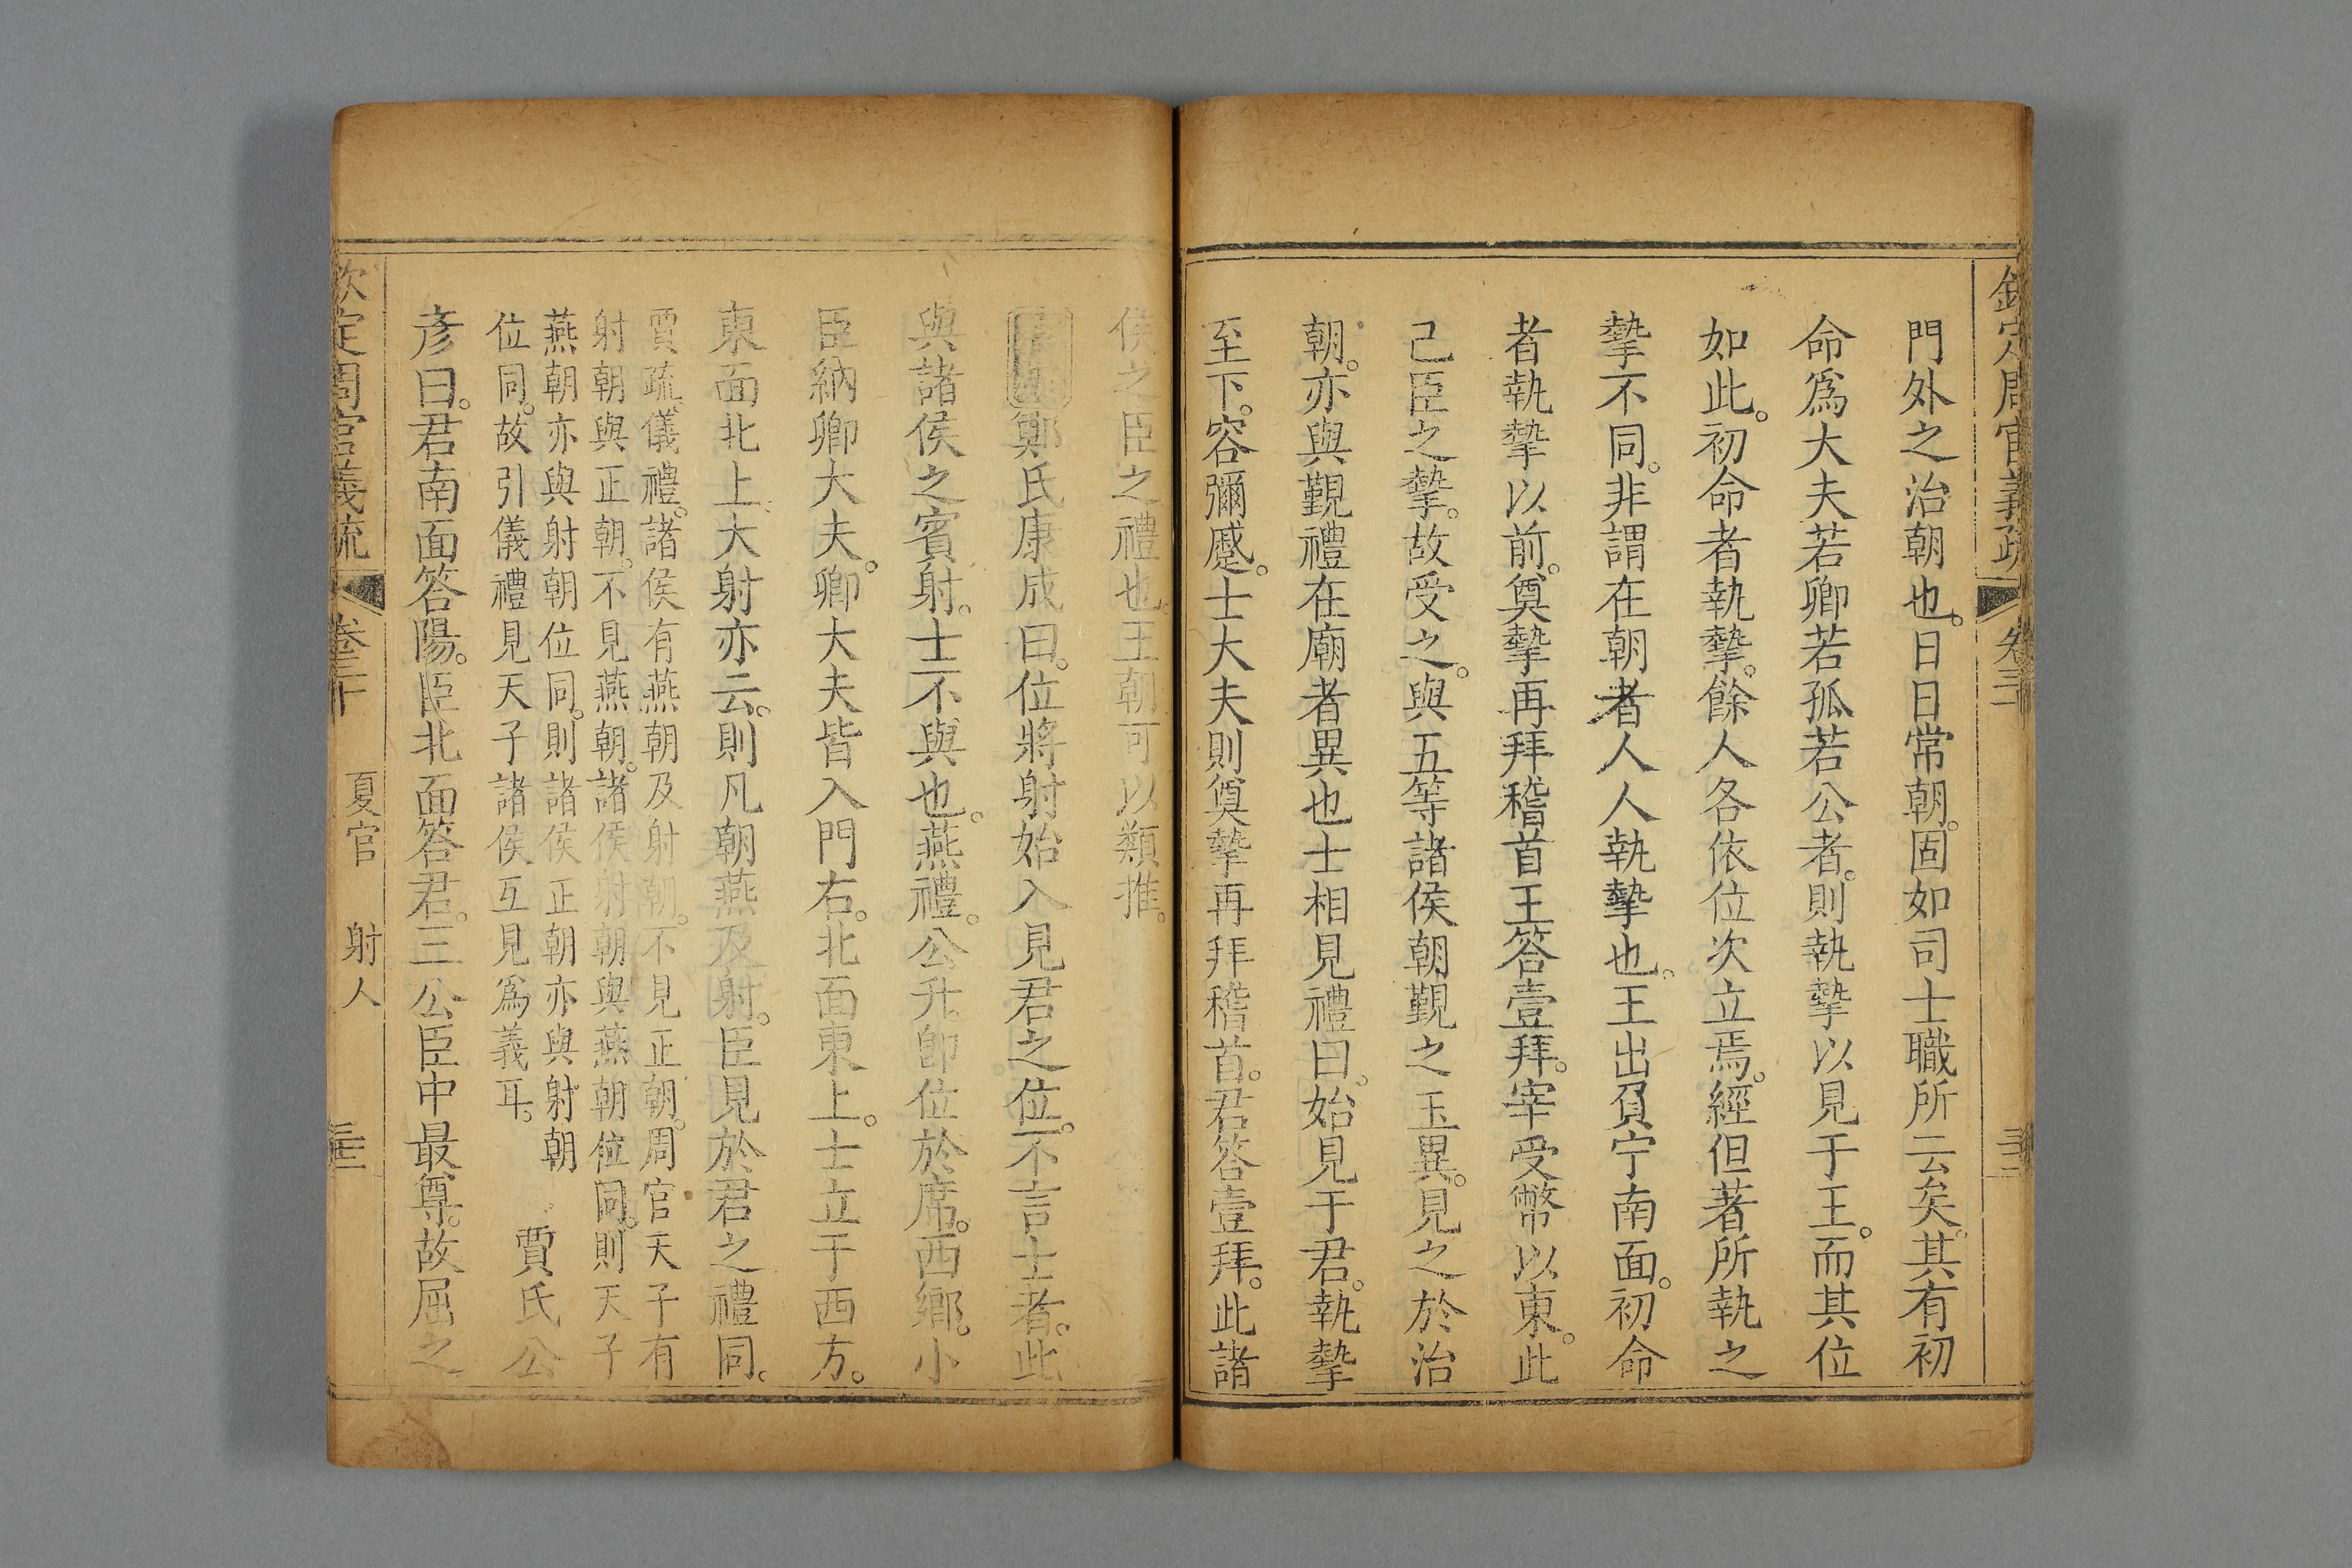 欽定周官義疏 卷三十
門外之治朝也。日日常朝。固如司士職所云矣。其有初
命爲大夫若卿若孤若公者。則執摯以見于王。而其位
如此。初命者執摯。餘人各依位次立焉。經但著所執之
摯不同。非謂在朝者人人執摯也。王出負宁南面。初命
者執摯以前。奠摯再拜稽首王答壹拜。宰受幣以東。此
己臣之摯。故受之。與五等諸侯朝覲之玉異。見之於治
朝。亦與覲禮在廟者異也士相見禮曰。始見于君。執摯
至下。容彌蹙。士大夫則奠摯再拜稽首。君答壹拜。此諸
侯之臣之禮也。王朝可以類推。
鄭氏康成曰。位將射始入見君之位。不言士者。此
與諸侯之賓射。士不與也。燕禮。公升卽位於席。西鄉。小
臣納卿大夫。卿大夫皆入門右。北面東上。士立于西方。
東面北上。大射亦云。則凡朝燕及射。臣見於君之禮同。
賈疏。儀禮。諸侯有燕朝及射朝。不見正朝。周官天子有
射朝與正朝。不見燕朝。諸侯射朝與燕朝位同。則天子
燕朝亦與射朝位同。則諸侯正朝亦與射朝
位同。故引儀禮見天子諸侯互見爲義耳。
賈氏公
彥曰。君南面答陽。臣北面答君。三公臣中最尊。故屈之
欽定周官義疏 卷三十 夏官 射人